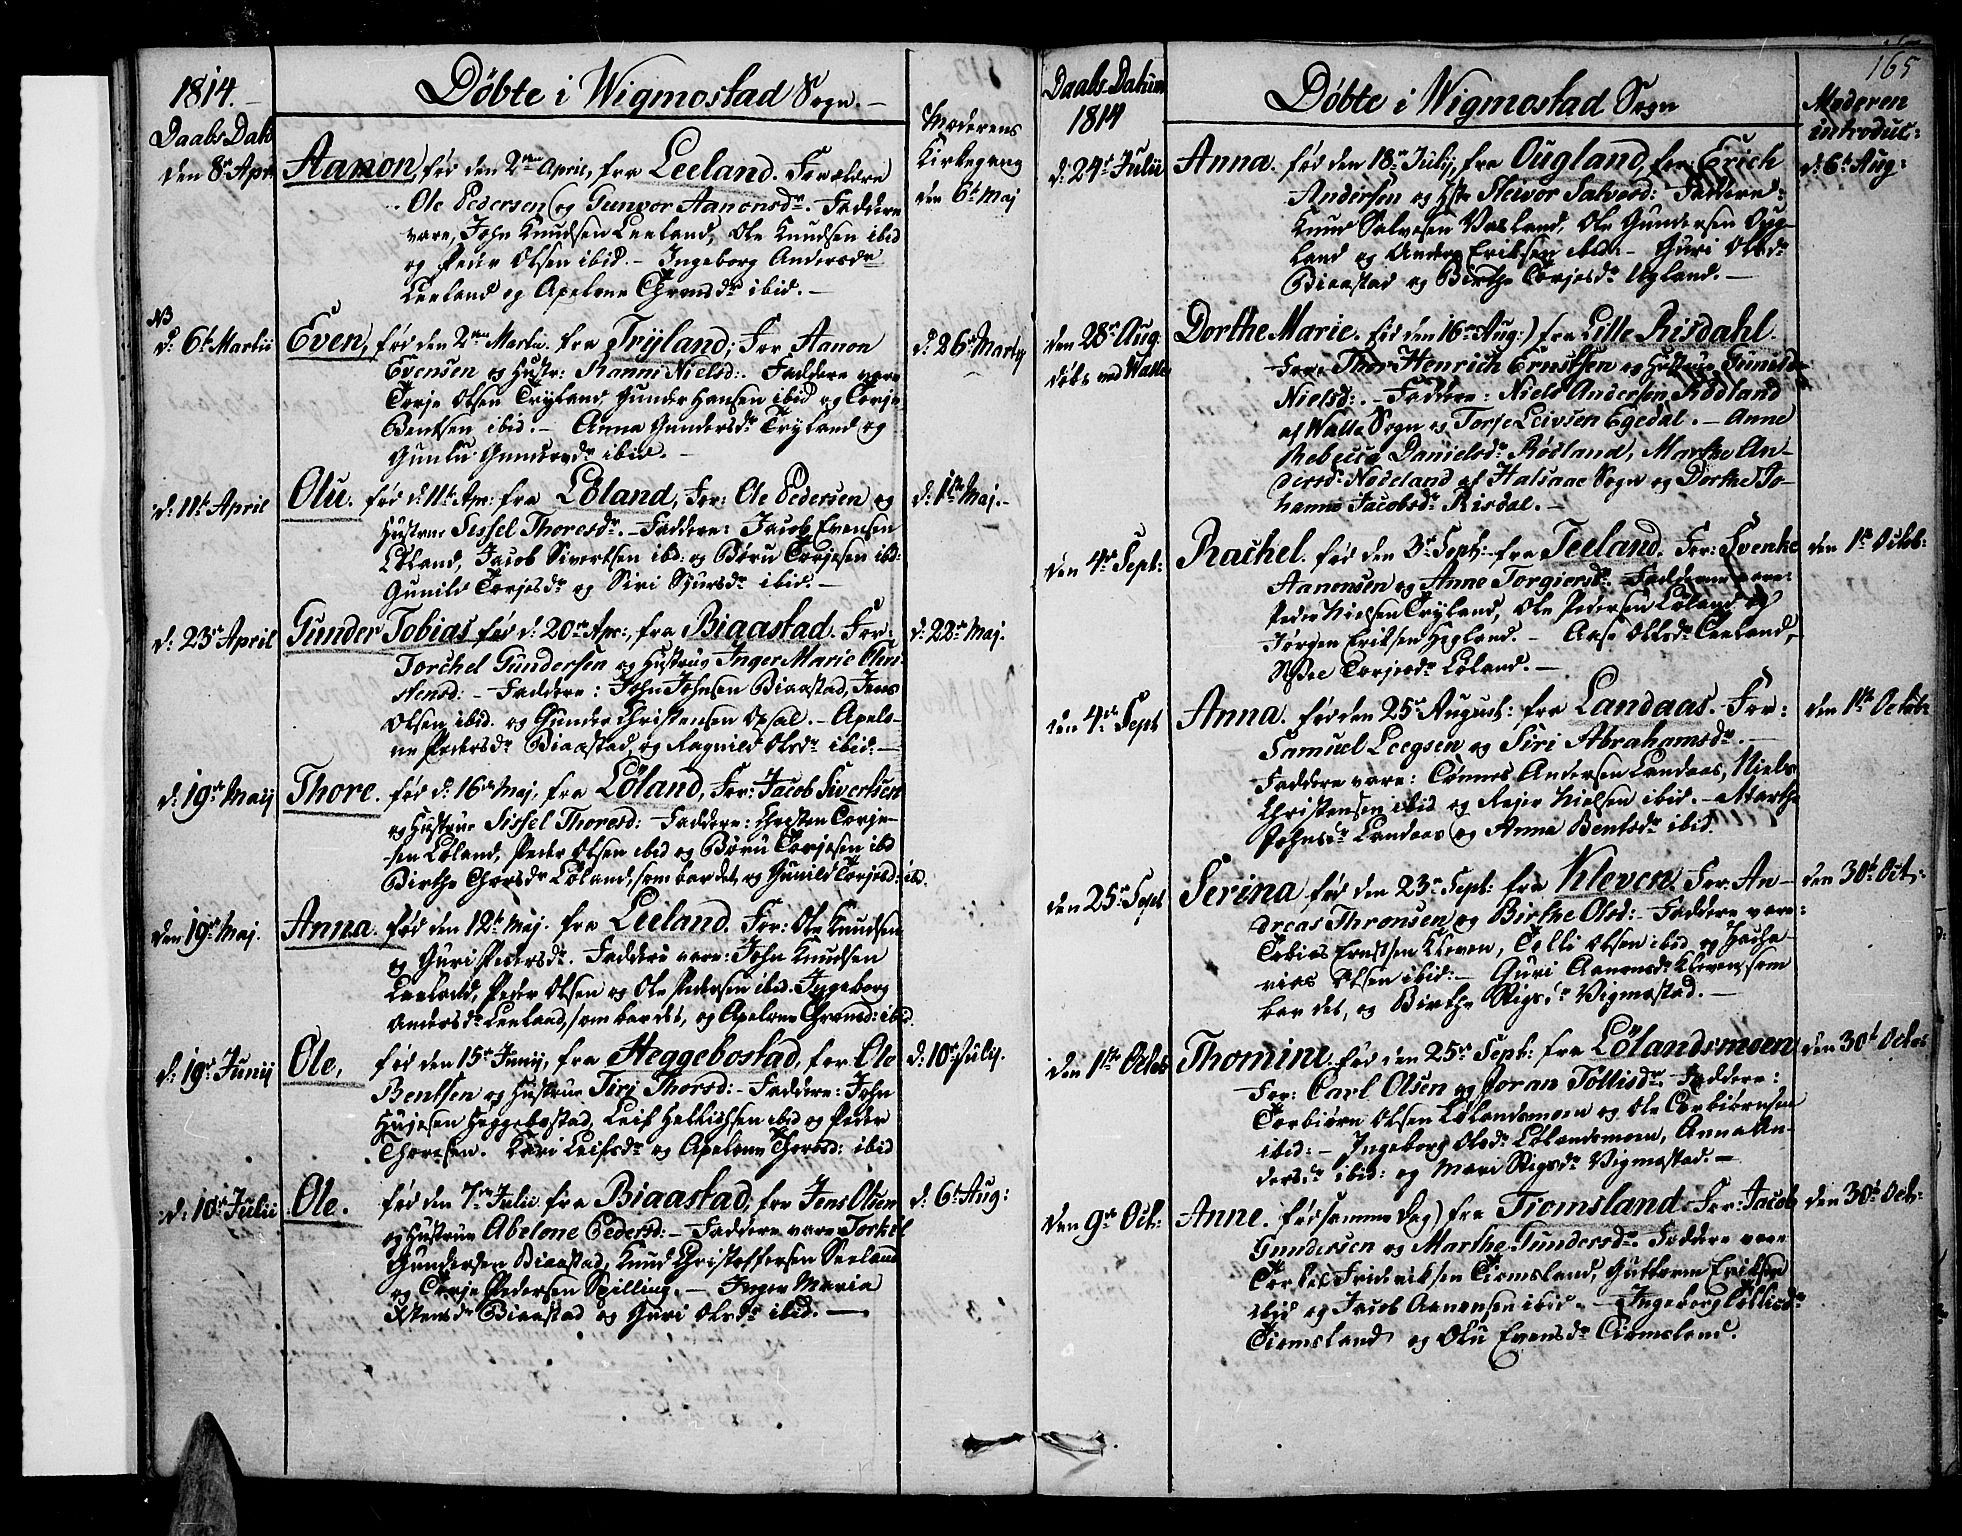 1814.
Døbte i Wigmostad Sogn.
Daabs Dat:
Moderens
Kirkegang
den 8de Apr.
Aanon, fød den 2den April, fra Leeland. Forældre
den 6te Maj
Ole Pedersen og Gunvor Aanonsdr. Faddere
vare, John Knudsen Leeland, Ole Knudsen ibid
og Peder Olsen ibid. – Ingeborg Andersdr
Leeland og Apelone Thronsdr ibid. –
NB
d: 6te Martii
Even, fød den 2den Martii. fra Tryland; For Aanon
d: 26de Martij
Evensen og Hustr: Ranni Nielsd:. Faddere vare
Torje Olsen Tryland Gunder Hansen ibid og Torje
Bentsen ibid. – Anna Gundersdr Tryland og
Gunlu Gundersdr ibid. –
d: 11te April
Olu. fød d: 11te Apr: fra Löland, For: Ole Pedersen og
d: 1ste Maj. –
Hustrue Sissel Thoresdr. – Faddere: Jacob Evensen
Löland, Jacob Sivertsen ibd: og Børu Torjesen ib:
Gunild Torjesdr og Siri Sjursdr ibid. –
d: 23de April
Gunder Tobias fød d: 20de Apr:, fra Biaastad. For:
d: 22de Maj.
Torchel Gundersen og Hustrue Inger Marie Chri-
stensd: – Faddere: John Johnsen Biaastad, Jens
Olsen ibid. og Gunder Christensen Opsal. – Apelo-
ne Pedersdr Biaastad og Ragnild Olsdr ibid: –
d: 19de Maij
Thore. fød d: 16de Maj, fra Löland, For: Jacob Sivertsen
og Hustrue Sissel Thoresd: Faddere: Christen Torje-
sen Löland, Peder Olsen ibid og Børu Torjesen ibd
Birthe Thorsdr Löland, som bar det, og Gunild Torjesd: ibd.
den 19de Maj.
Anna. fød den 12te Maj. fra Leeland. For: Ole Knudsen
og Guri Pedersdr. Faddere vare: John Knudsen
Leeland, Peder Olsen og Ole Pedersen ibid. Ingeborg
Andersdr Leeland, som bar det, og Apelone Thronsd: ibid.
d: 19de Junij
Ole, fød den 15de Junij, fra Heggebostad, for Ole
d: 10de July.
Bentsen og Hustrue Siri Thorsd: – Faddere: John
Heggebostad, Leif ibid og Peder
Thoresen. Kari Leifsdr og Apelone Thoresd: ibid
d: 10de Julii
Ole. fød den 7de Julii fra Biaastad, for Jens Olsen
d. 6te Aug:
og Hustrue Abelone Pedersd: – Faddere vare Torkel
Gundersen Biaastad, Knud Christoffersen Leeland
og Torje Pedersen Spilling. – Inger Maria
Biaastad og Guri Olsdr ibid. –
165
Daabs Datum
1814
Døbte i Wigmostad Sogn
Moderen
introduc:
d. 24de Julii
Anna. fød den 18de July, fra Ougland, for Erich
d: 6te Aug:
Andersen og Hstr Steivor Salvesd: Faddere:
Knud Salvesen Vasland, Ole Gundersen Oug-
land og Anders Eriksen ibid: – Guri Olsdr
Biaastad og Birthe Torjesdr Ugland. –
den 28de Aug:
døbt ved Walle
Dorthe Marie. fød den 16de Aug:) fra Lille Risdahl.
For: Thor Henrich Ernstsen og Hustrue
Nielsd:. – Faddere: Niels Andersen Rødland
af Walle Sogn og Torje Leivsen Egedal. – Anne
Rebecca Danielsdr Rødland, Marthe An-
dersdr Nødeland af Halsaae Sogn og Dorthe Jo-
hanne Jacobsdr Risdal. –
den 4de Sept:
Rachel. fød den 3de Sept: fra Leeland. For: Svenke
den 1ste Octob:
Aanonsen og Anne Torgiersdr. Fadderne vare:
Peder Nielsen Tryland, Ole Pedersen Löland og
Jørgen Eriksen Hegland. – Aase Olsdr Leeland,
Torjesdr Löland. –
den 4de Sept
Anna. fød den 25de August: fra Landaas. For:
den 1ste Octobr
Samuel Leegsen og Siri Abrahamsdr. –
Faddere vare: Tønnes Andersen Landaas, Niels
Christensen ibid og Rejer Nielsen ibid. – Marthe
Johnsdr Landaas og Anna Bentsdr ibid.
den 25de Sept
Serina fød den 23de Sept: fra Kleven. For: An-
den 30te Oct:
dreas Thronsen og Birthe Olsd: – Faddere vare:
Tobias Ernstsen Kleven, Tolli Olsen ibid og Zacha-
rias Olsen ibid: – Guri Aanonsdr Kleven, som
bar det, og Birthe Stigsdr Vigmostad. –
den 1ste Octob
Thomine. fød den 25de Sept: fra Lölandsmoen
den 30te Octob
For: Carl Olsen og Joran Tollisdr. Faddere:
Torbiørn Olsen Lølandsmoen og Ole Torbiørnsen
ibid: – Ingeborg Olsdr Lölandsmoen, Anna An-
dersdr ibid: og Mari Stigsdr Vigmostad. –
den 9de Oct:
Anne. fød samme Dag) fra Tiomsland. For: Jacob
den 30te Oct:
Gundersen og Marthe Gundersdr. Faddere vare
Torkel Fridriksen Tiomsland, Guttorm Eriksen
ibid og Jacob Aanonsen ibid. – Ingeborg Tollisdr
Tiomsland og Olu Evensdr Tiomsland.